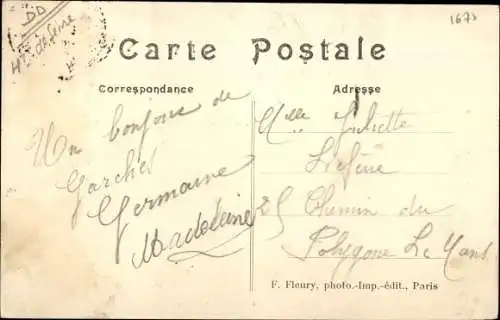 DD
1673
Carte Postale
Correspondance
Adresse
Un bonjour de
Garches
Germaine
Madeleine
Mlle Juliette
Lefène
25 Chemin du
Polygone Le Mans
F. Fleury, photo.-Imp.-édit., Paris